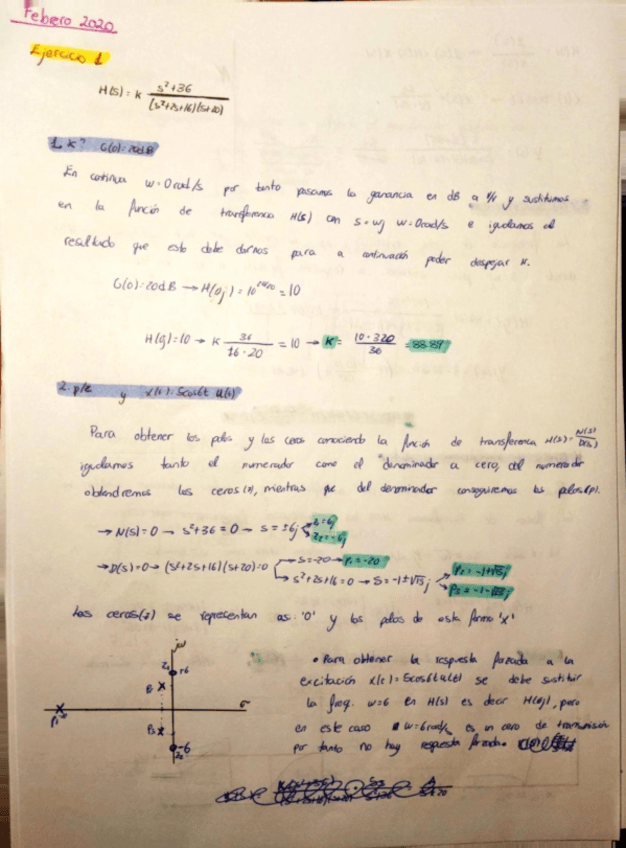 Febero 2020
Ejercicio 1
H(s) = K (s²+36)/((s²+2s+16)(s+20))
1. K? G(0)=20dB
En continua w=0rad/s por tanto pasamos la ganancia en dB a % y sustituimos
en la función de transferencia H(s) con s=wj w=0rad/s e igualamos el
resultado que esto debe darnos para a continuación poder despejar K.
G(0)=20dB → H(0j)=10^(20/20)=10
H(0j)=10 → K 36/(16·20) = 10 → K = (10·320)/36 = 88.89
2. p/c y x(t)=5cos6t u(t)
Para obtener los polos y los ceros conociendo la función de transferencia H(s)=N(s)/D(s)
igualamos tanto el numerador como el denominador a cero, del numerador
obtendremos los ceros(z), mientras que del denominador conseguiremos los polos(p).
→ N(s)=0 → s²+36=0 → s=±6j z₁=6j
z₂=-6j
→ D(s)=0 → (s²+2s+16)(s+20)=0 s=-20 → p₁=-20
s²+2s+16=0 → s=-1±√15j p₂=-1+√15j
p₃=-1-√15j
Los ceros(z) se representan así 'O' y los polos de esta forma 'x'
jw
z₁ 6
P₂
σ
P₁
P₃
-6
z₂
• Para obtener la respuesta forzada a la
excitación x(t)=5cos6t u(t) se debe sustituir
la freq. w=6 en H(s) es decir H(6j), pero
en este caso w=6rad/s es un cero de transmisión
por tanto no hay respuesta forzada.